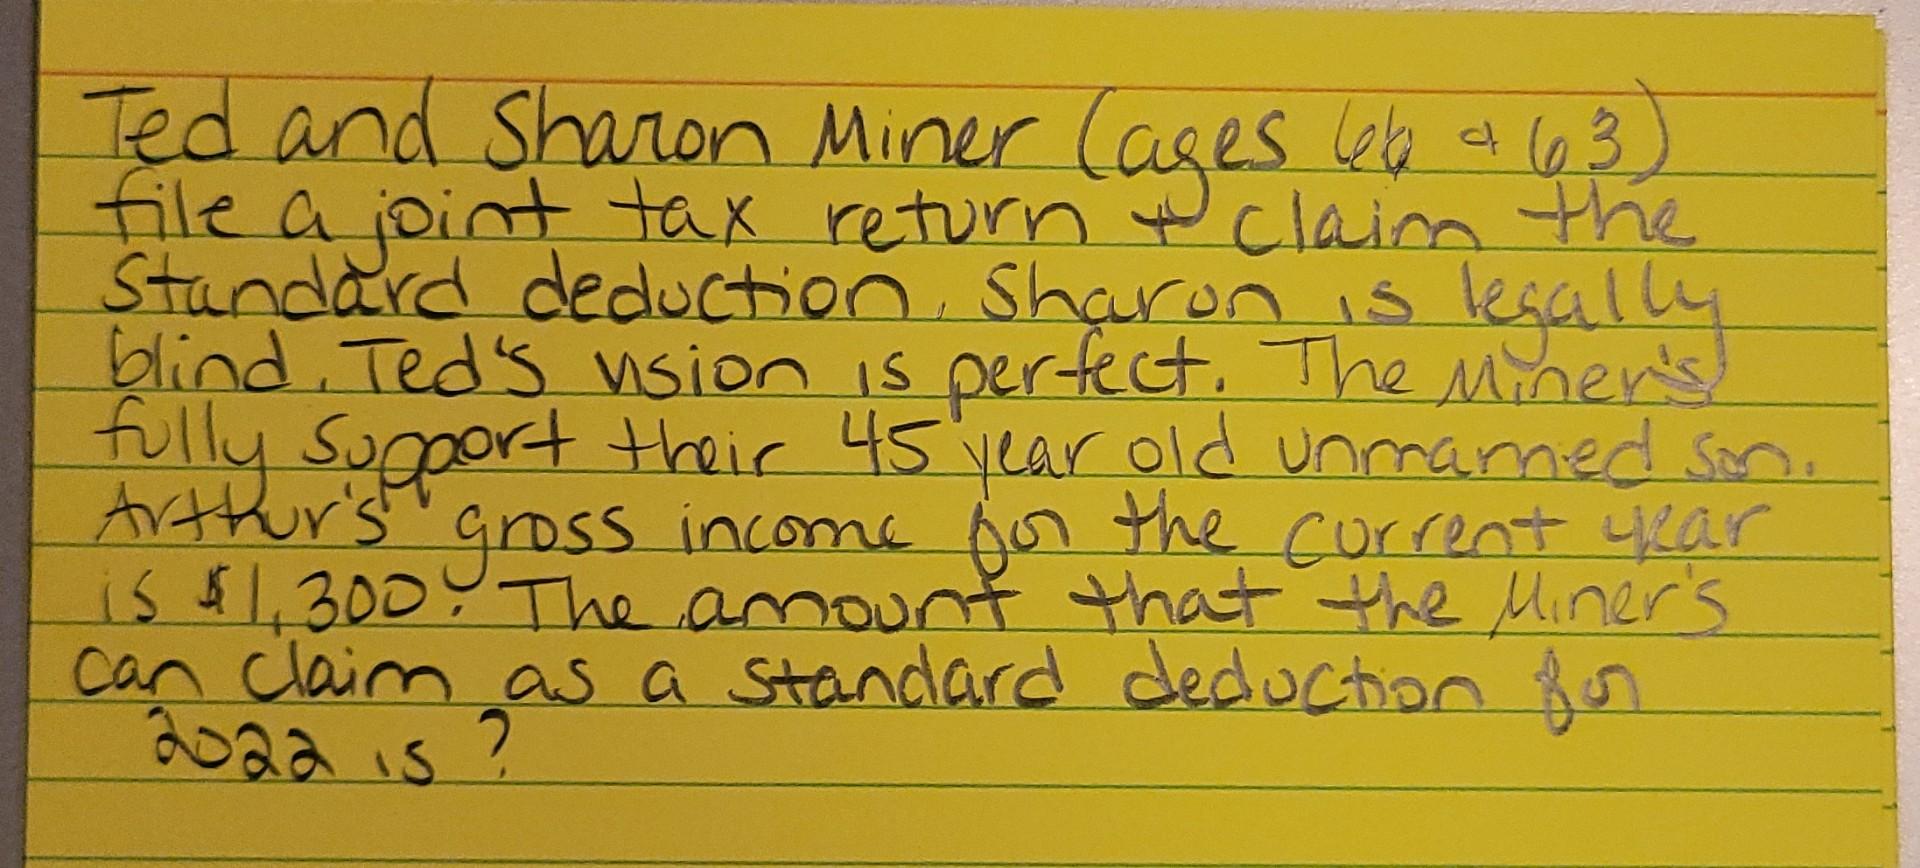 Ted and Sharon Miner (ages 66 & 63)
file a joint tax return + claim the
standard deduction. Sharon is legally
blind. Ted's vision is perfect. The Miner's
fully support their 45 year old unmarried son.
Arthur's gross income for the current year
is $1,300. The amount that the Miner's
can claim as a standard deduction for
2022 is?